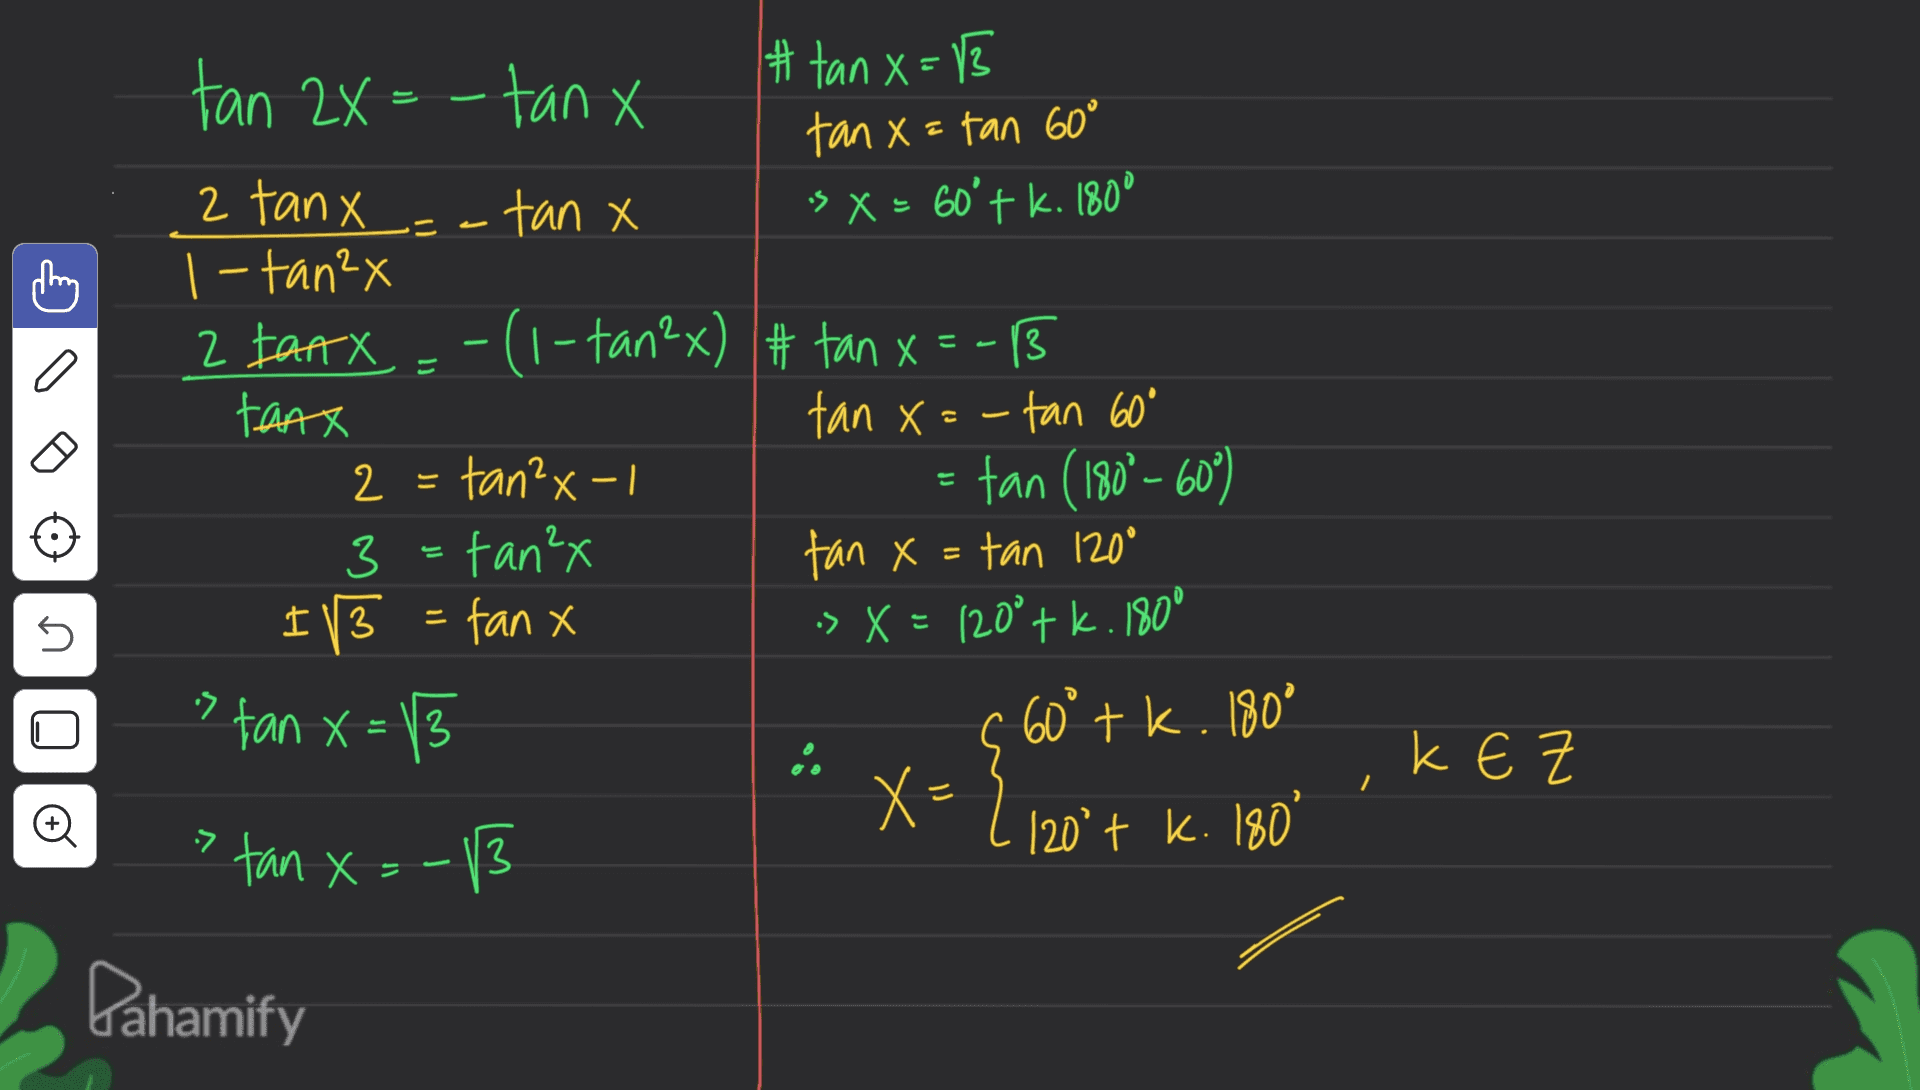 tan 2x = - tan x
2 tan x / 1 - tan²x = - tan x
2 tan x / tan x = -(1 - tan²x)
2 = tan²x - 1
3 = tan²x
±√3 = tan x
:> tan x = √3
:> tan x = -√3
# tan x = √3
tan x = tan 60°
:> x = 60° + k. 180°
# tan x = -√3
tan x = - tan 60°
= tan (180° - 60°)
tan x = tan 120°
:> x = 120° + k. 180°
∴ x = { 60° + k. 180°
120° + k. 180° , k ∈ Z
Pahamify